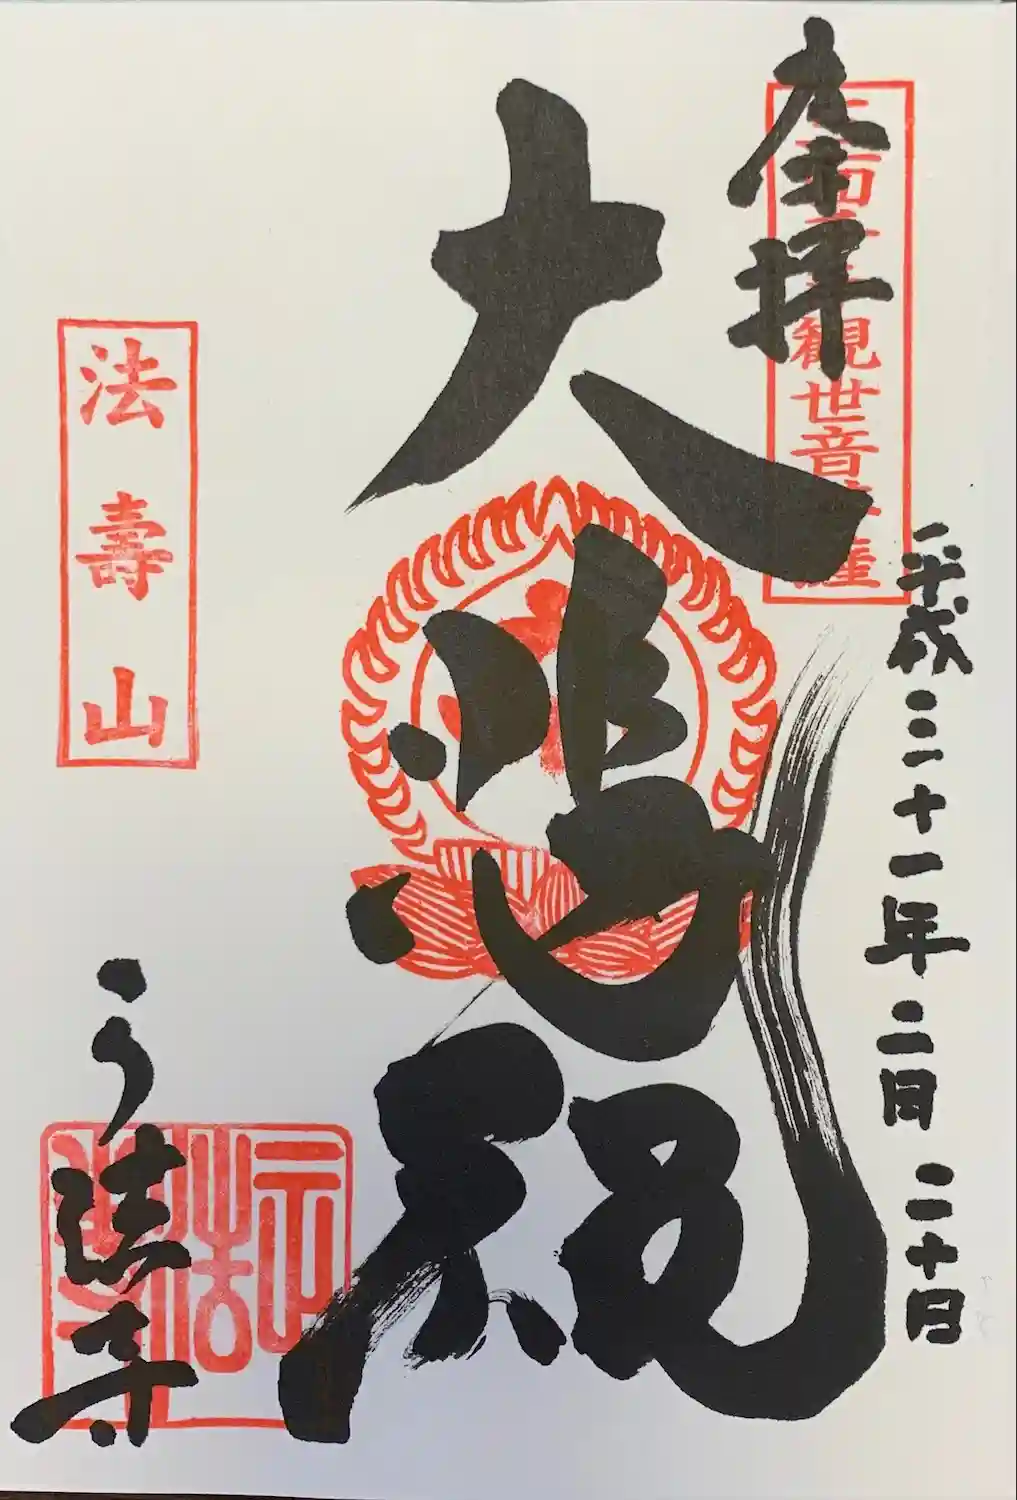 奉拝
観世音菩薩
平成三十一年二月二十日
大悲殿
法壽山
正法寺